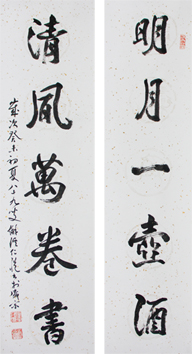 明月一壺酒
清風萬卷書
歲次癸未初夏八十九叟